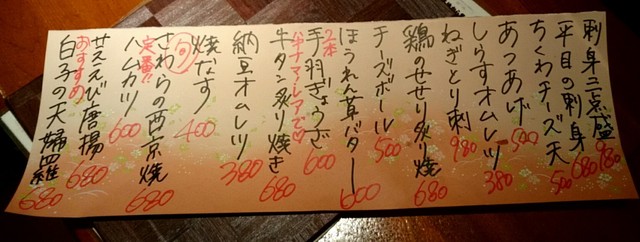 刺身三点盛 980
平目の刺身 680
ちくわチーズ天 500
あつあげ 500
しらすオムレツ 380
ねぎとり刺 980
鶏のせせり炙り焼 680
チーズボール 500
ほうれん草バター 600
2本
手羽ぎょうざ 600
ハナマ〜レアズ♡
牛タン炙り焼き 680
納豆オムレツ 380
焼なす 400
旬
さわらの西京焼 680
定番!!
ハムカツ 600
サエえび唐揚 680
おすすめ
白子の天婦羅 680